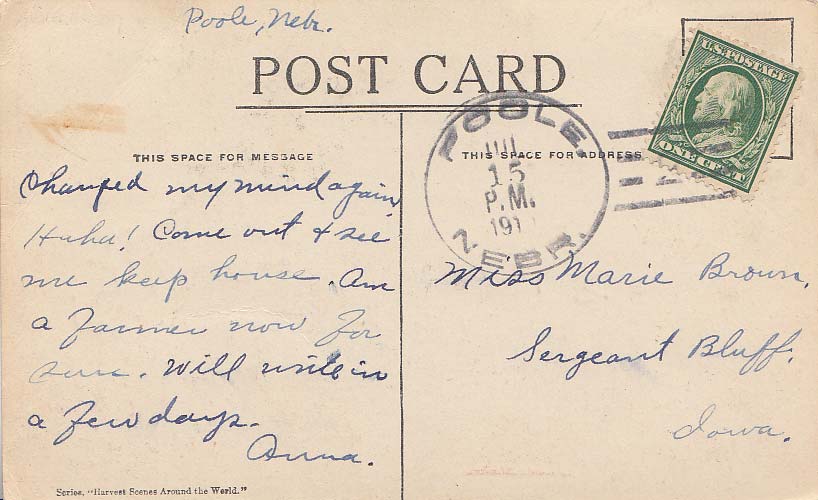 Poole, Nebr.
POST CARD
U.S. POSTAGE
ONE CENT
POOLE.
JUL
15
P.M.
191
NEBR.
THIS SPACE FOR MESSAGE
THIS SPACE FOR ADDRESS
Changed my mind again,
Haha! Come out & see
me keep house. Am
a farmer now for
sure. Will write in
a few days.
Anna.
Miss Marie Brown,
Sergeant Bluff.
Iowa.
Series, "Harvest Scenes Around the World."